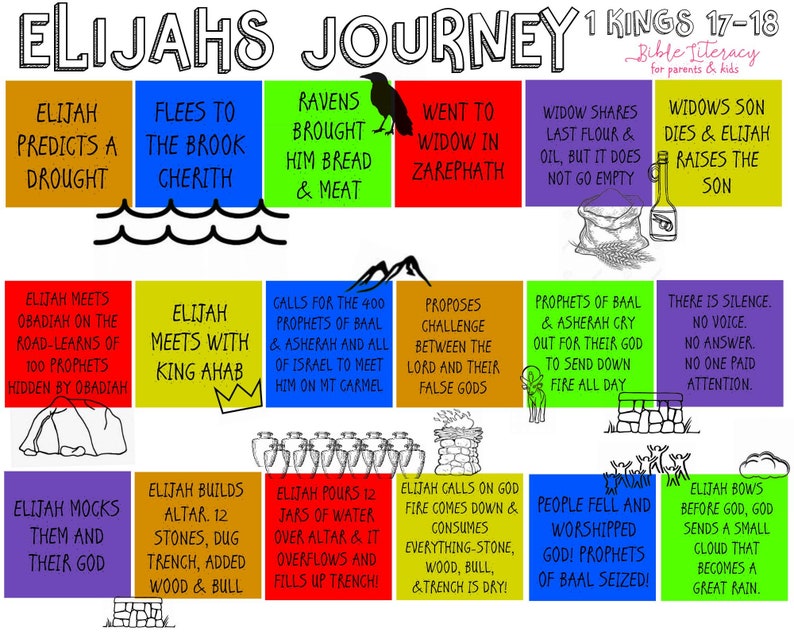 ELIJAHS JOURNEY
1 KINGS 17-18
Bible Literacy
for parents & kids
ELIJAH
PREDICTS A
DROUGHT
FLEES TO
THE BROOK
CHERITH
RAVENS
BROUGHT
HIM BREAD
& MEAT
WENT TO
WIDOW IN
ZAREPHATH
WIDOW SHARES
LAST FLOUR &
OIL, BUT IT DOES
NOT GO EMPTY
WIDOWS SON
DIES & ELIJAH
RAISES THE
SON
ELIJAH MEETS
OBADIAH ON THE
ROAD-LEARNS OF
100 PROPHETS
HIDDEN BY OBADIAH
ELIJAH
MEETS WITH
KING AHAB
CALLS FOR THE 400
PROPHETS OF BAAL
& ASHERAH AND ALL
OF ISRAEL TO MEET
HIM ON MT CARMEL
PROPOSES
CHALLENGE
BETWEEN THE
LORD AND THEIR
FALSE GODS
PROPHETS OF BAAL
& ASHERAH CRY
OUT FOR THEIR GOD
TO SEND DOWN
FIRE ALL DAY
THERE IS SILENCE.
NO VOICE.
NO ANSWER.
NO ONE PAID
ATTENTION.
ELIJAH MOCKS
THEM AND
THEIR GOD
ELIJAH BUILDS
ALTAR. 12
STONES, DUG
TRENCH, ADDED
WOOD & BULL
ELIJAH POURS 12
JARS OF WATER
OVER ALTAR & IT
OVERFLOWS AND
FILLS UP TRENCH!
ELIJAH CALLS ON GOD
FIRE COMES DOWN &
CONSUMES
EVERYTHING-STONE,
WOOD, BULL,
&TRENCH IS DRY!
PEOPLE FELL AND
WORSHIPPED
GOD! PROPHETS
OF BAAL SEIZED!
ELIJAH BOWS
BEFORE GOD, GOD
SENDS A SMALL
CLOUD THAT
BECOMES A
GREAT RAIN.